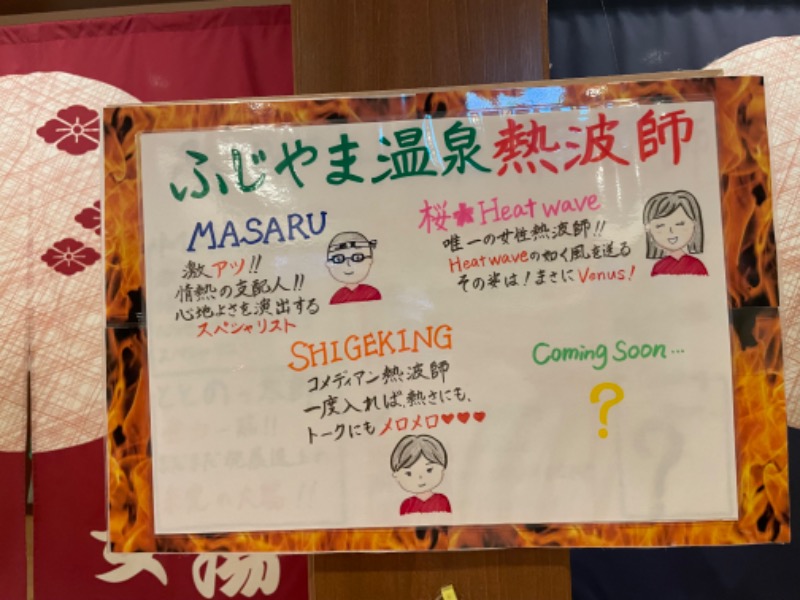 ふじやま温泉熱波師
MASARU
激アツ!!
情熱の支配人!!
心地よさを演出する
スペシャリスト
桜★Heat wave
唯一の女性熱波師!!
Heat waveの如く風を送る
その姿は!まさにVenus!
SHIGEKING
コメディアン熱波師
一度入れば、熱さにも、
トークにもメロメロ♥♥♥
Coming Soon…
?
女湯